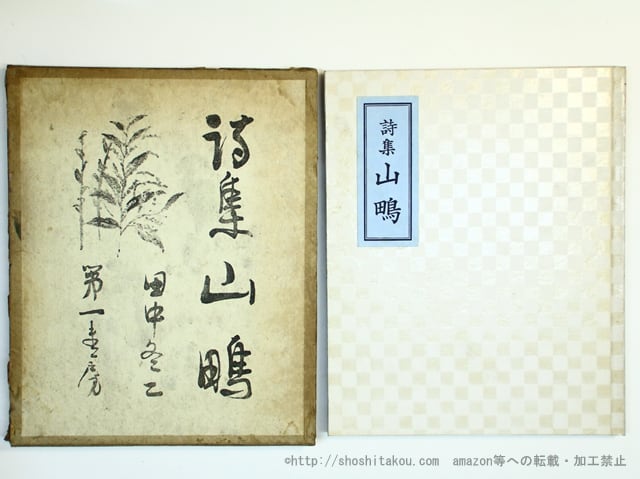 詩集山鴫
田中冬二
第一書房
詩集
山鴫
©http://shoshitakou.com amazon等への転載・加工禁止